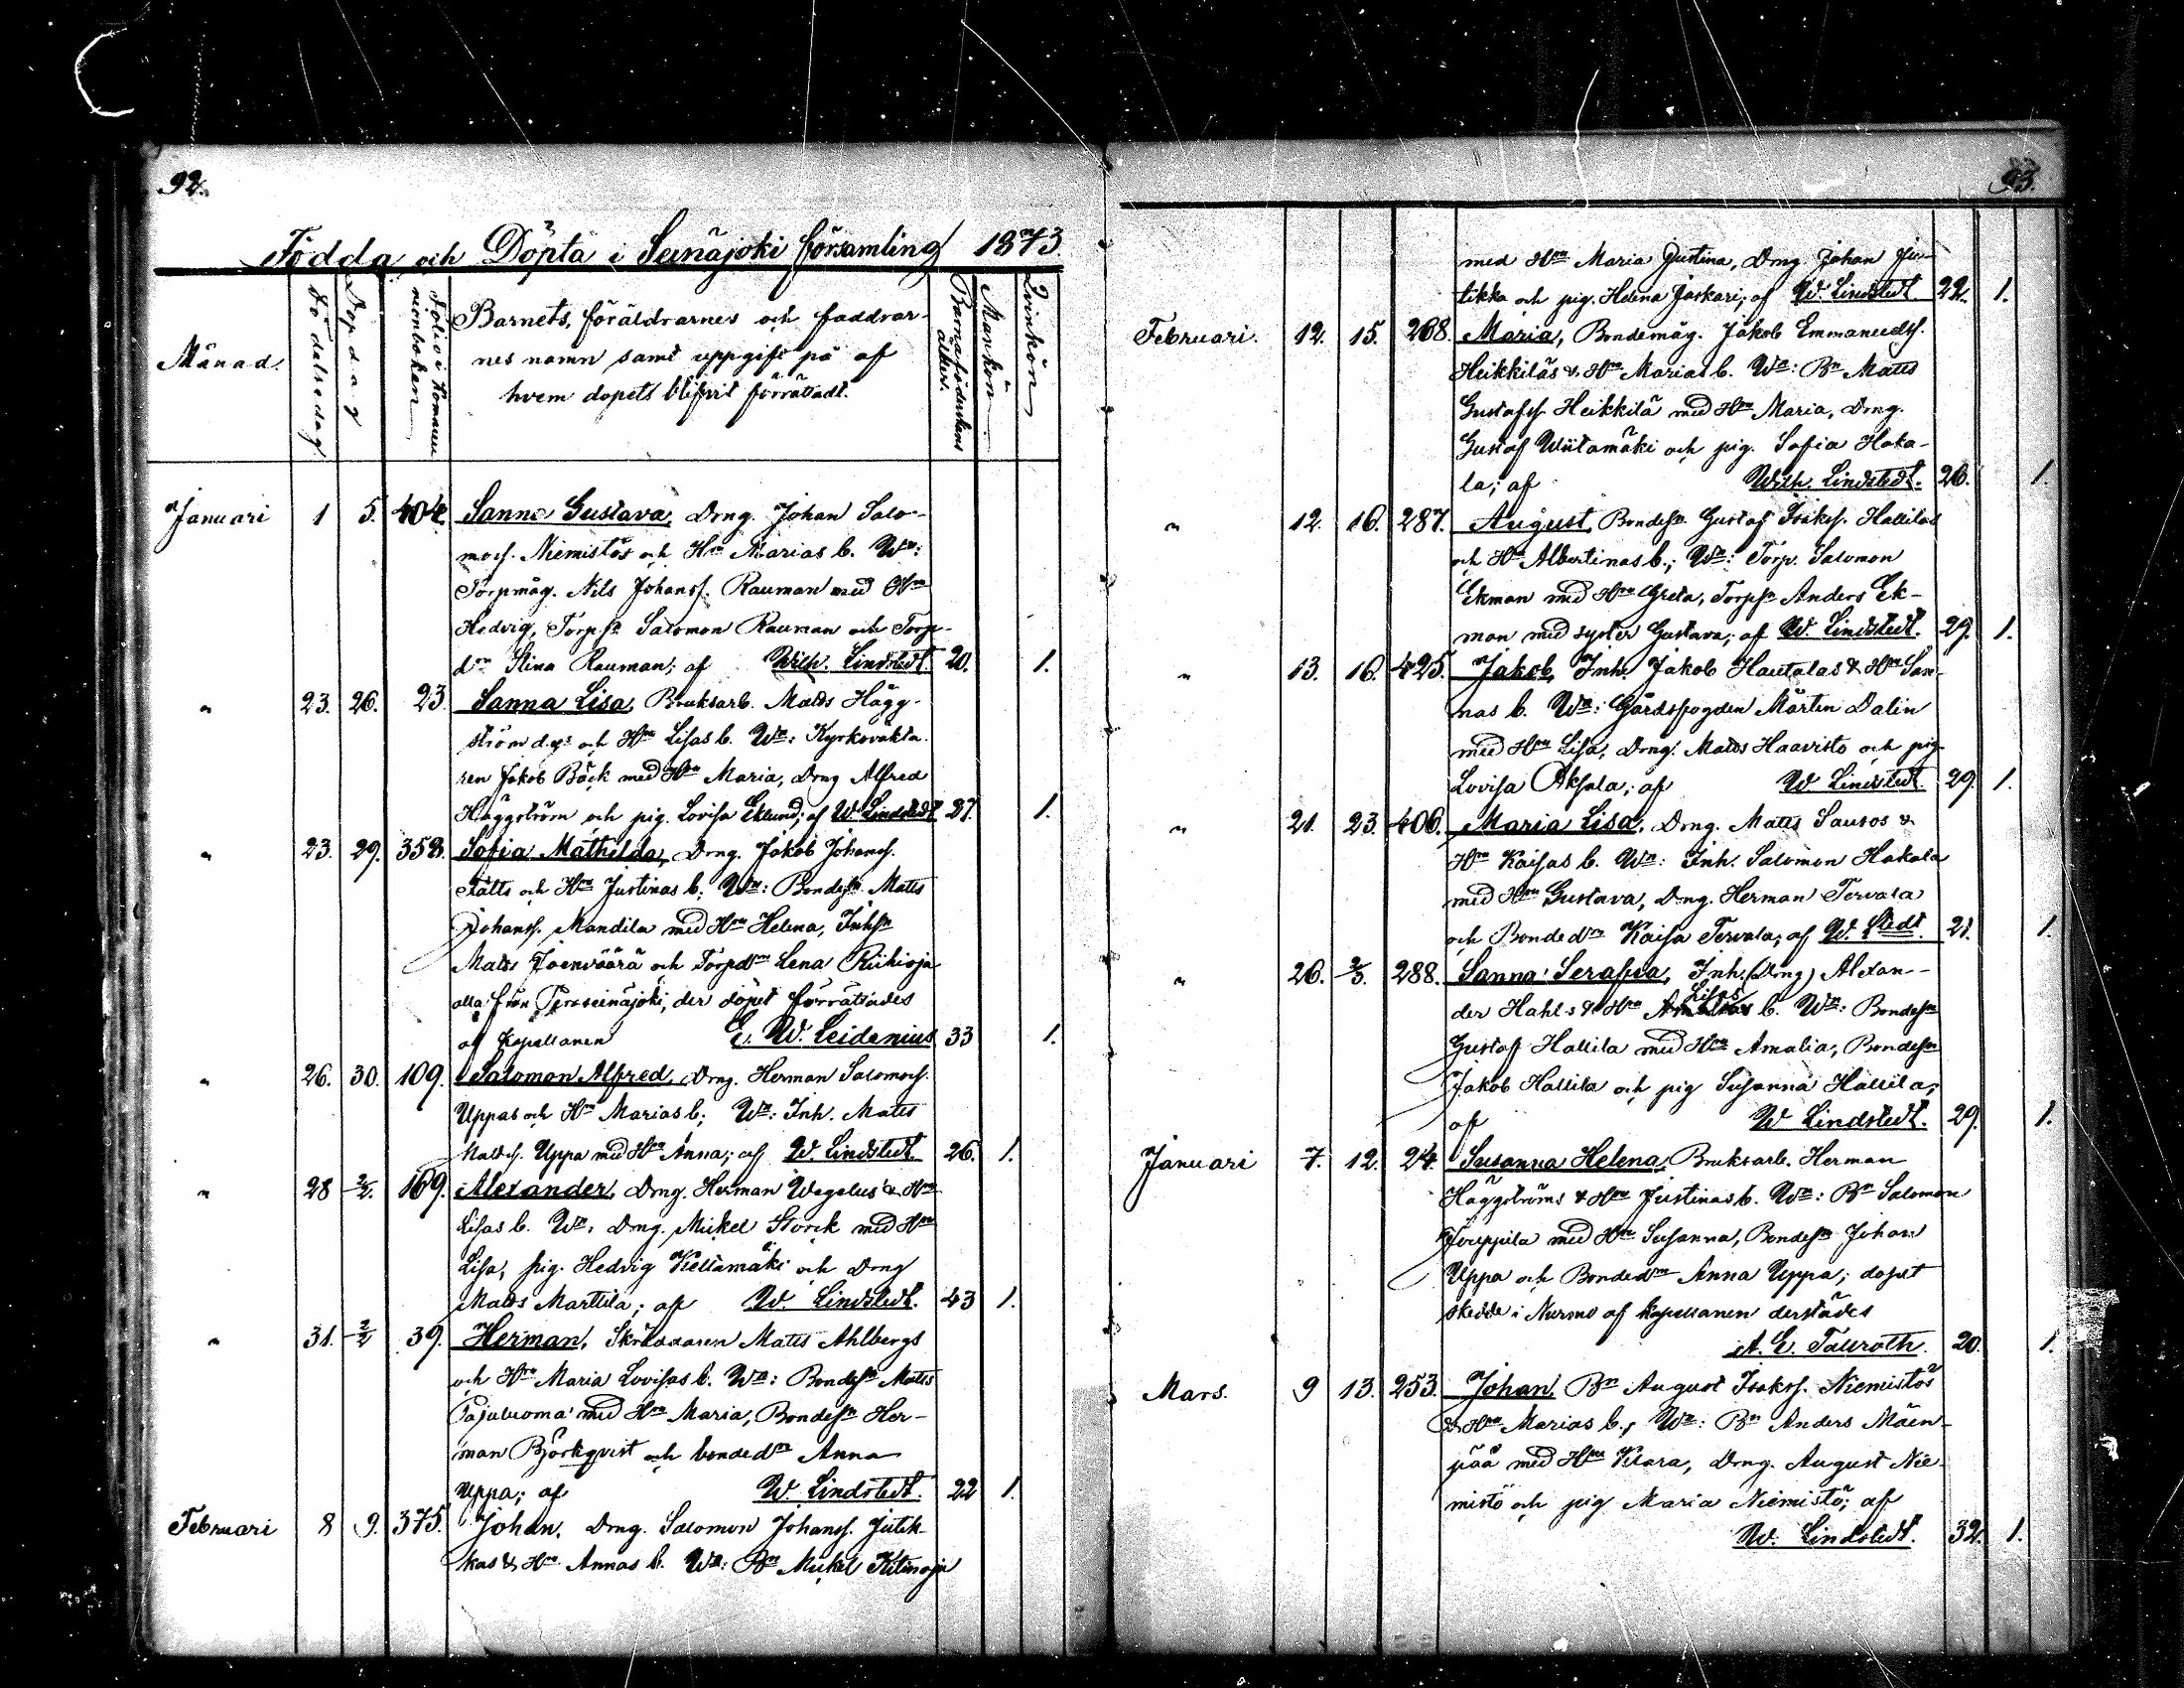 92.
Födda och Döpta i Seinäjoki församling 1873.
Månad. Födelsedag Dopdag Folio i Kommunionboken Barnets, föräldrarnes och faddrar- Barnaföderskans ålder. Mankön Qvinkön
nes namn samt uppgift på af
hvem dopets blifvit förrättadt.
Januari 1 5. 404. Sanna Gustava, Drng. Johan Salo-
moss. Niemistös och Hn Marias b. Wn:
Torpmåg. Nils Johanss. Rauman med Hn
Hedvig, Torpsn Salomon Rauman och Torp-
dn Stina Rauman; af Wilh. Lindstedt. 20. 1.
" 23. 26. 23 Sanna Lisa, Bruksarb. Matts Hägg-
ström d.y:s och Hn Lisas b. Wn: Kyrkovakta-
ren Jakob Bäck med Hn Maria, Drng Alfred
Häggström och pig. Lovisa Eklund; af W. Lindstedt 27. 1.
" 23. 29. 358. Sofia Mathilda, Drng. Jakob Johanss.
Tälts och Hn Justinas b; Wn: Bondesn Matts
Johanss. Mandila med Hn Helena, Inhsn
Matts Joenväärä och Torpdn Lena Riihioja
alla från Peräseinäjoki, der döpet förrättades
af Kapellanen E. W. Leidenius 33 1.
" 26. 30. 109. Salomon Alfred, Drng. Herman Salomoss.
Uppas och Hn Marias b; Wn: Inh. Matts
Mattss. Uppa med Hn Anna; af W. Lindstedt 26. 1.
" 28 2/2. 169. Alexander, Drng. Herman Wegelus & Hn
Lisas b. Wn: Drng. Mickel Storck med Hn
Lisa, pig. Hedvig Keltamäki och Drng
Matts Marttila; af W. Lindstedt. 43 1.
" 31. 2/2 39. Herman, Skräddaren Matts Ahlbergs
och Hn Maria Lovisas b. Wn: Bondesn Matts
Pajuluoma med Hn Maria, Bondesn Her-
man Björkqvist och bondedn Anna
Uppa; af W. Lindstedt. 22 1.
Februari 8 9. 375. Johan, Drng. Salomon Johanss. Jutik-
kas & Hn Annas b. Wn: Bn Mickel Kitinoja
93.
med Hn Maria Justina, Drng. Johan Ju-
tikka och pig. Helena Jaskari; af W. Lindstedt 22. 1.
Februari. 12. 15. 268. Maria, Bondemåg. Jakob Emmanuelss.
Heikkiläs & Hn Marias b. Wn: Bn Matts
Gustafss. Heikkilä med Hn Maria, Drng.
Gustaf Wiitamäki och pig. Sofia Haka-
la; af Wilh. Lindstedt. 26. 1.
" 12. 16. 287. August, Bondesn Gustaf Isakss. Hallilas
och Hn Albertinas b.; Wn: Torp. Salomon
Ekman med Hn Greta, Torpsn Anders Ek-
man med syster Gustava; af W. Lindstedt. 29. 1.
" 13. 16. 425. Jakob, Inh. Jakob Hautalas & Hn San-
nas b. Wn: Gårdsfogden Mårten Dalin
med Hn Lisa, Drng. Matts Haavisto och pig
Lovisa Aksala; af W Lindstedt. 29. 1.
" 21. 23. 406. Maria Lisa, Drng. Matts Sausos &
Hn Kaisas b. Wn: Inh. Salomon Hakala
med Hn Gustava, Drng. Herman Tervala
och Bondedn Kaisa Tervala; af W. Lstedt 21. 1.
" 26. 2/3. 288. Sanna Serafia, Inh. (Drng) Alexan-
der Hahls & Hn Lisas b. Wn: Bondesn
Gustaf Hallila med Hn Amalia, Bondesn
Jakob Hallila och pig Susanna Hallila;
af W Lindstedt. 29. 1.
Januari 7. 12. 24. Susanna Helena, Bruksarb. Herman
Häggströms & Hn Justinas b. Wn: Bn Salomon
Jouppila med Hn Susanna, Bondesn Johan
Uppa och Bondedn Anna Uppa; dopet
skedde i Nurmo af kapellanen derstädes
A. E. Taurath. 20. 1.
Mars. 9 13. 253. Johan, Bn August Isakss. Niemistös
& Hn Marias b.; Wn: Bn Anders Mäen-
pää med Hn Klara, Drng. August Nie-
mistö och pig Maria Niemistö; af
W. Lindstedt. 32. 1.